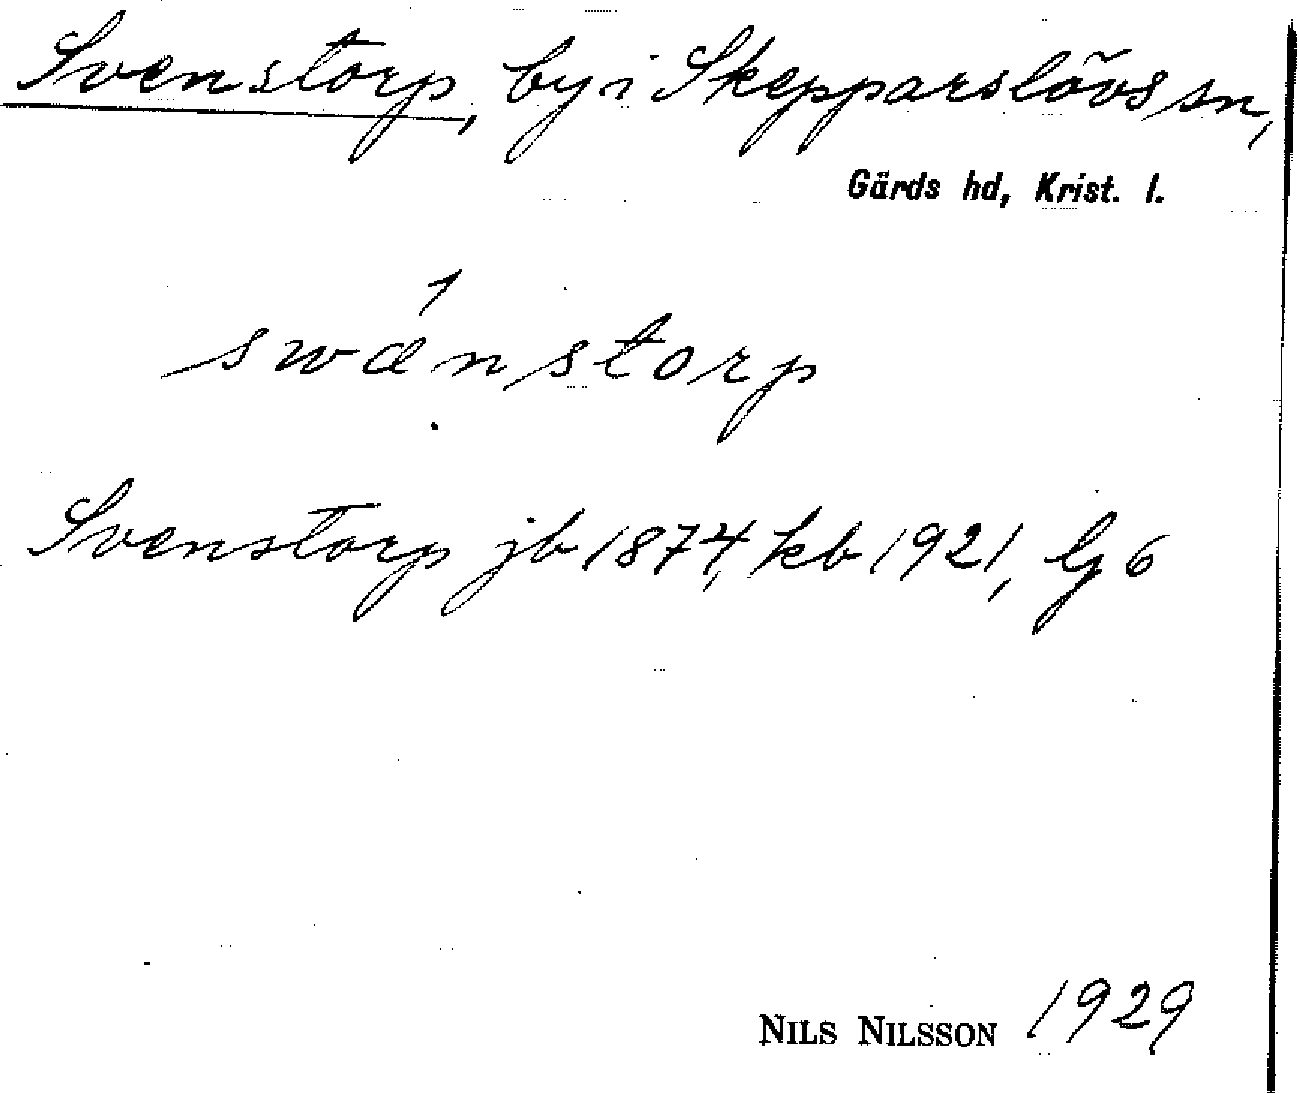 Svenstorp, by i Skepparslövs sn,
Gärds hd, Krist. l.
swǽnstorp
Svenstorp jb 1874, kb 1921, Gj 6
NILS NILSSON 1929